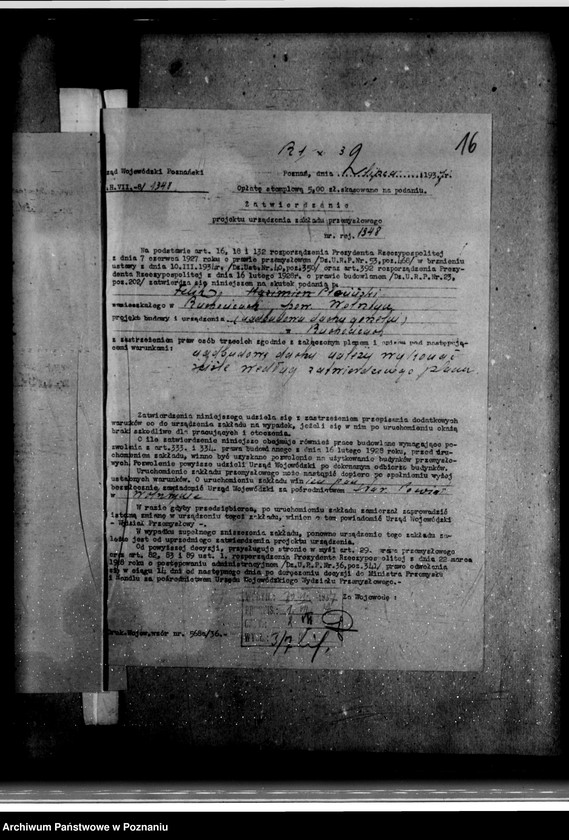 16
39
rząd Wojewódzki Poznański
Poznań, dnia 1. lipca 1937 r.
.H.VII.-8/ 1348
Opłatę stemplową 5,00 zł. skasowano na podaniu.
Zatwierdzenie
projektu urządzenia zakładu przemysłowego
nr. rej. 1348
Na podstawie art. 16, 18 i 132 rozporządzenia Prezydenta Rzeczypospolitej
z dnia 7 czerwca 1927 roku o prawie przemysłowem /Dz.U.R.P.Nr.53,poz.468/ w brzmieniu
ustawy z dnia 10.III.1934r, /Dz.Ust.Nr.40,poz.350/ oraz art.392 rozporządzenia Prezy-
denta Rzeczypospolitej z dnia 16 lutego 1928r. o prawie budowlanem /Dz.U.R.P.Nr.23,
poz.202/ zatwierdza się niniejszem na skutek podania p.
Kazimierz
zamieszkałego w pow. Wolsztyn
projekt budowy i urządzenia (nadbudowa dachu
w
z zastrzeżeniem praw osób trzecich zgodnie z załączonym planem i opisem pod następują-
cemi warunkami:
nadbudowę dachu należy wykonać
ściśle według zatwierdzonego planu.
Zatwierdzenia niniejszego udziela się z zastrzeżeniem przepisania dodatkowych
warunków co do urządzenia zakładu na wypadek, jeżeli się w nim po uruchomieniu okażą
braki szkodliwe dla pracujących i otoczenia.
O ile zatwierdzenie niniejsze obejmuje również prace budowlane wymagające po-
zwolenia z art.333. i 334. prawa budowlanego z dnia 16 lutego 1928 roku, przed uru-
chomieniem zakładu, winno być uzyskane pozwolenie na użytkowanie budynków przemysło-
wych. Pozwolenie powyższe udzieli Urząd Wojewódzki po dokonanym odbiorze budynków.
Uruchomienie zakładu przemysłowego może nastąpić dopiero po spełnieniu wyżej
ustalonych warunków. O uruchomieniu zakładu winien pan
bezzwłocznie zawiadomić Urząd Wojewódzki za pośrednictwem Star. Powiat.
w Wolsztynie
W razie gdyby przedsiębiorca, po uruchomieniu zakładu zamierzał zaprowadzić
istotną zmianę w urządzeniu tegoż zakładu, winien o tem powiadomić Urząd Wojewódzki
- Wydział Przemysłowy -.
W wypadku zupełnego zniszczenia zakładu, ponowne urządzenie tego zakładu za-
leżne jest od uprzedniego zatwierdzenia projektu urządzenia.
Od powyższej decyzji, przysługuje stronie w myśl art. 29. prawa przemysłowego
oraz art. 82, 83 i 89 ust. 1. rozporządzenia Prezydenta Rzeczypospolitej z dnia 22 marca
1928 roku o postępowaniu administracyjnem /Dz.U.R.P.Nr.36,poz.341/ prawo odwołania
się w ciągu 14 dni od następnego dnia po doręczeniu decyzji do Ministra Przemysłu
i Handlu za pośrednictwem Urzędu Wojewódzkiego Wydziału Przemysłowego.-
Za Wojewodę:
Druk.Wojew.wzór nr. 568a/36.-
Archiwum Państwowe w Poznaniu